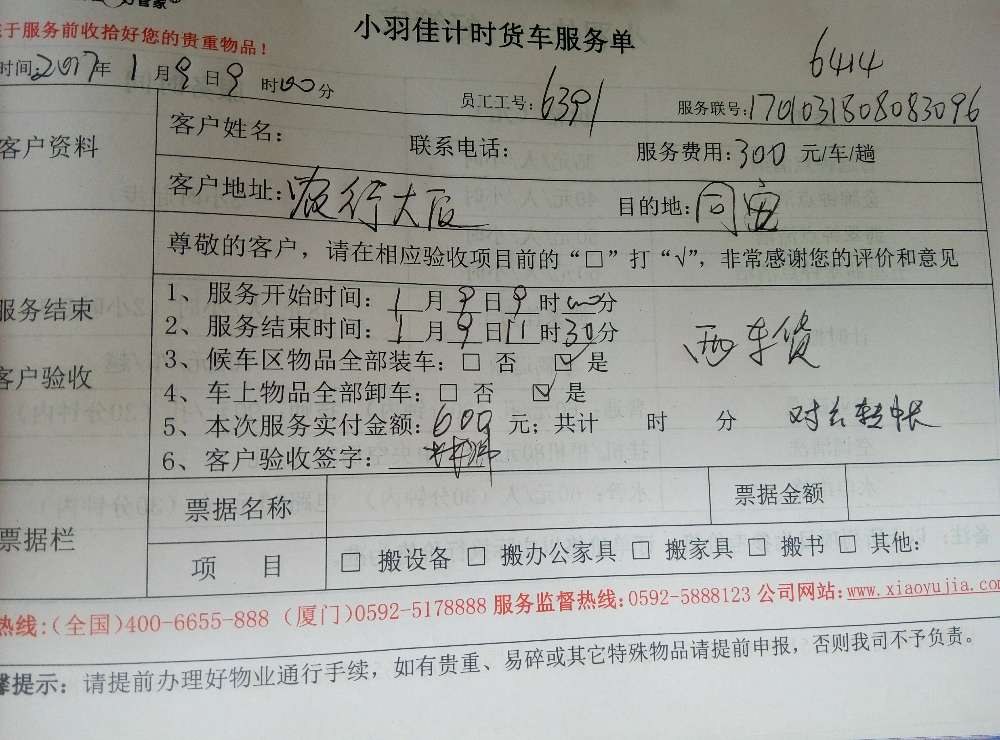 好管家
于服务前收拾好您的贵重物品!
小羽佳计时货车服务单
6414
时间:2017年1月9日9时00分
员工工号:6391
服务联号:170103180808083096
客户资料
客户姓名:
联系电话:
服务费用:300元/车/趟
客户地址:农行大厦
目的地:同安
尊敬的客户，请在相应验收项目前的“□”打“√”，非常感谢您的评价和意见
服务结束
客户验收
1、服务开始时间:1月9日9时00分
2、服务结束时间:1月9日11时30分
3、候车区物品全部装车:□ 否 ☑ 是
两车货
4、车上物品全部卸车:□ 否 ☑ 是
5、本次服务实付金额:600元;共计 时 分
对公转帐
6、客户验收签字:
票据栏
票据名称
票据金额
项 目
□ 搬设备 □ 搬办公家具 □ 搬家具 □ 搬书 □ 其他:
热线:(全国)400-6655-888 (厦门)0592-5178888 服务监督热线:0592-5888123 公司网站:www.xiaoyujia.com
馨提示: 请提前办理好物业通行手续，如有贵重、易碎或其它特殊物品请提前申报，否则我司不予负责。